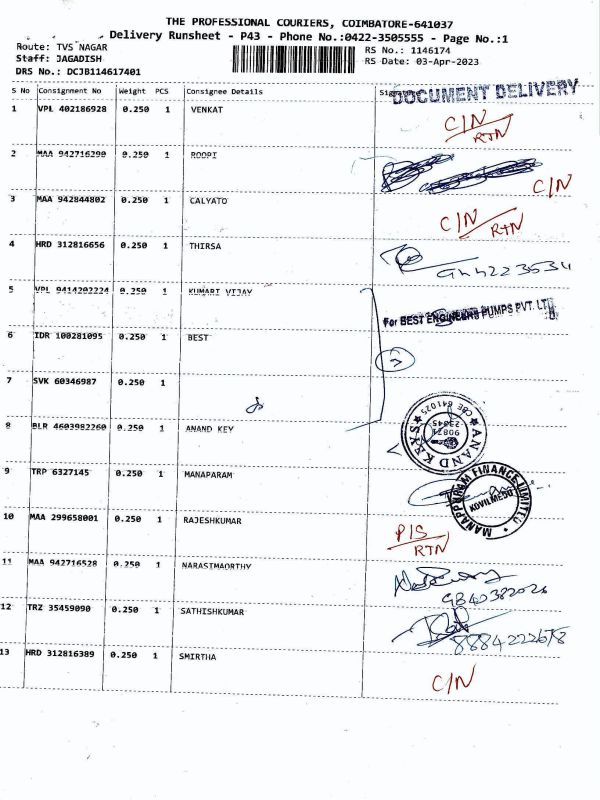 THE PROFESSIONAL COURIERS, COIMBATORE-641037
Delivery Runsheet - P43 - Phone No.:0422-3505555 - Page No.:1
Route: TVS NAGAR
Staff: JAGADISH
DRS No.: DCJB114617401
RS No.: 1146174
RS Date: 03-Apr-2023
S No Consignment No Weight PCS Consignee Details
DOCUMENT DELIVERY
1 VPL 402186928 0.250 1 VENKAT
C/N
RTN
2 MAA 942716290 0.250 1 ROOPI
C/N
3 MAA 942844802 0.250 1 CALYATO
C/N RTN
4 HRD 312816656 0.250 1 THIRSA
5 VPL 9414202224 0.250 1 KUMARI VIJAY
For BEST ENGINEERS PUMPS PVT. LTD
6 IDR 100281095 0.250 1 BEST
7 SVK 60346987 0.250 1
8 BLR 4603982260 0.250 1 ANAND KEY
ANAND KEYS
CBE 641025
90871
23845
9 TRP 6327145 0.250 1 MANAPARAM
MANAPPURAM FINANCE LIMITED
KOVILMEDU
10 MAA 299658001 0.250 1 RAJESHKUMAR
P/S
RTN
11 MAA 942716528 0.250 1 NARASIMAORTHY
12 TRZ 35459090 0.250 1 SATHISHKUMAR
13 HRD 312816389 0.250 1 SMIRTHA
C/N